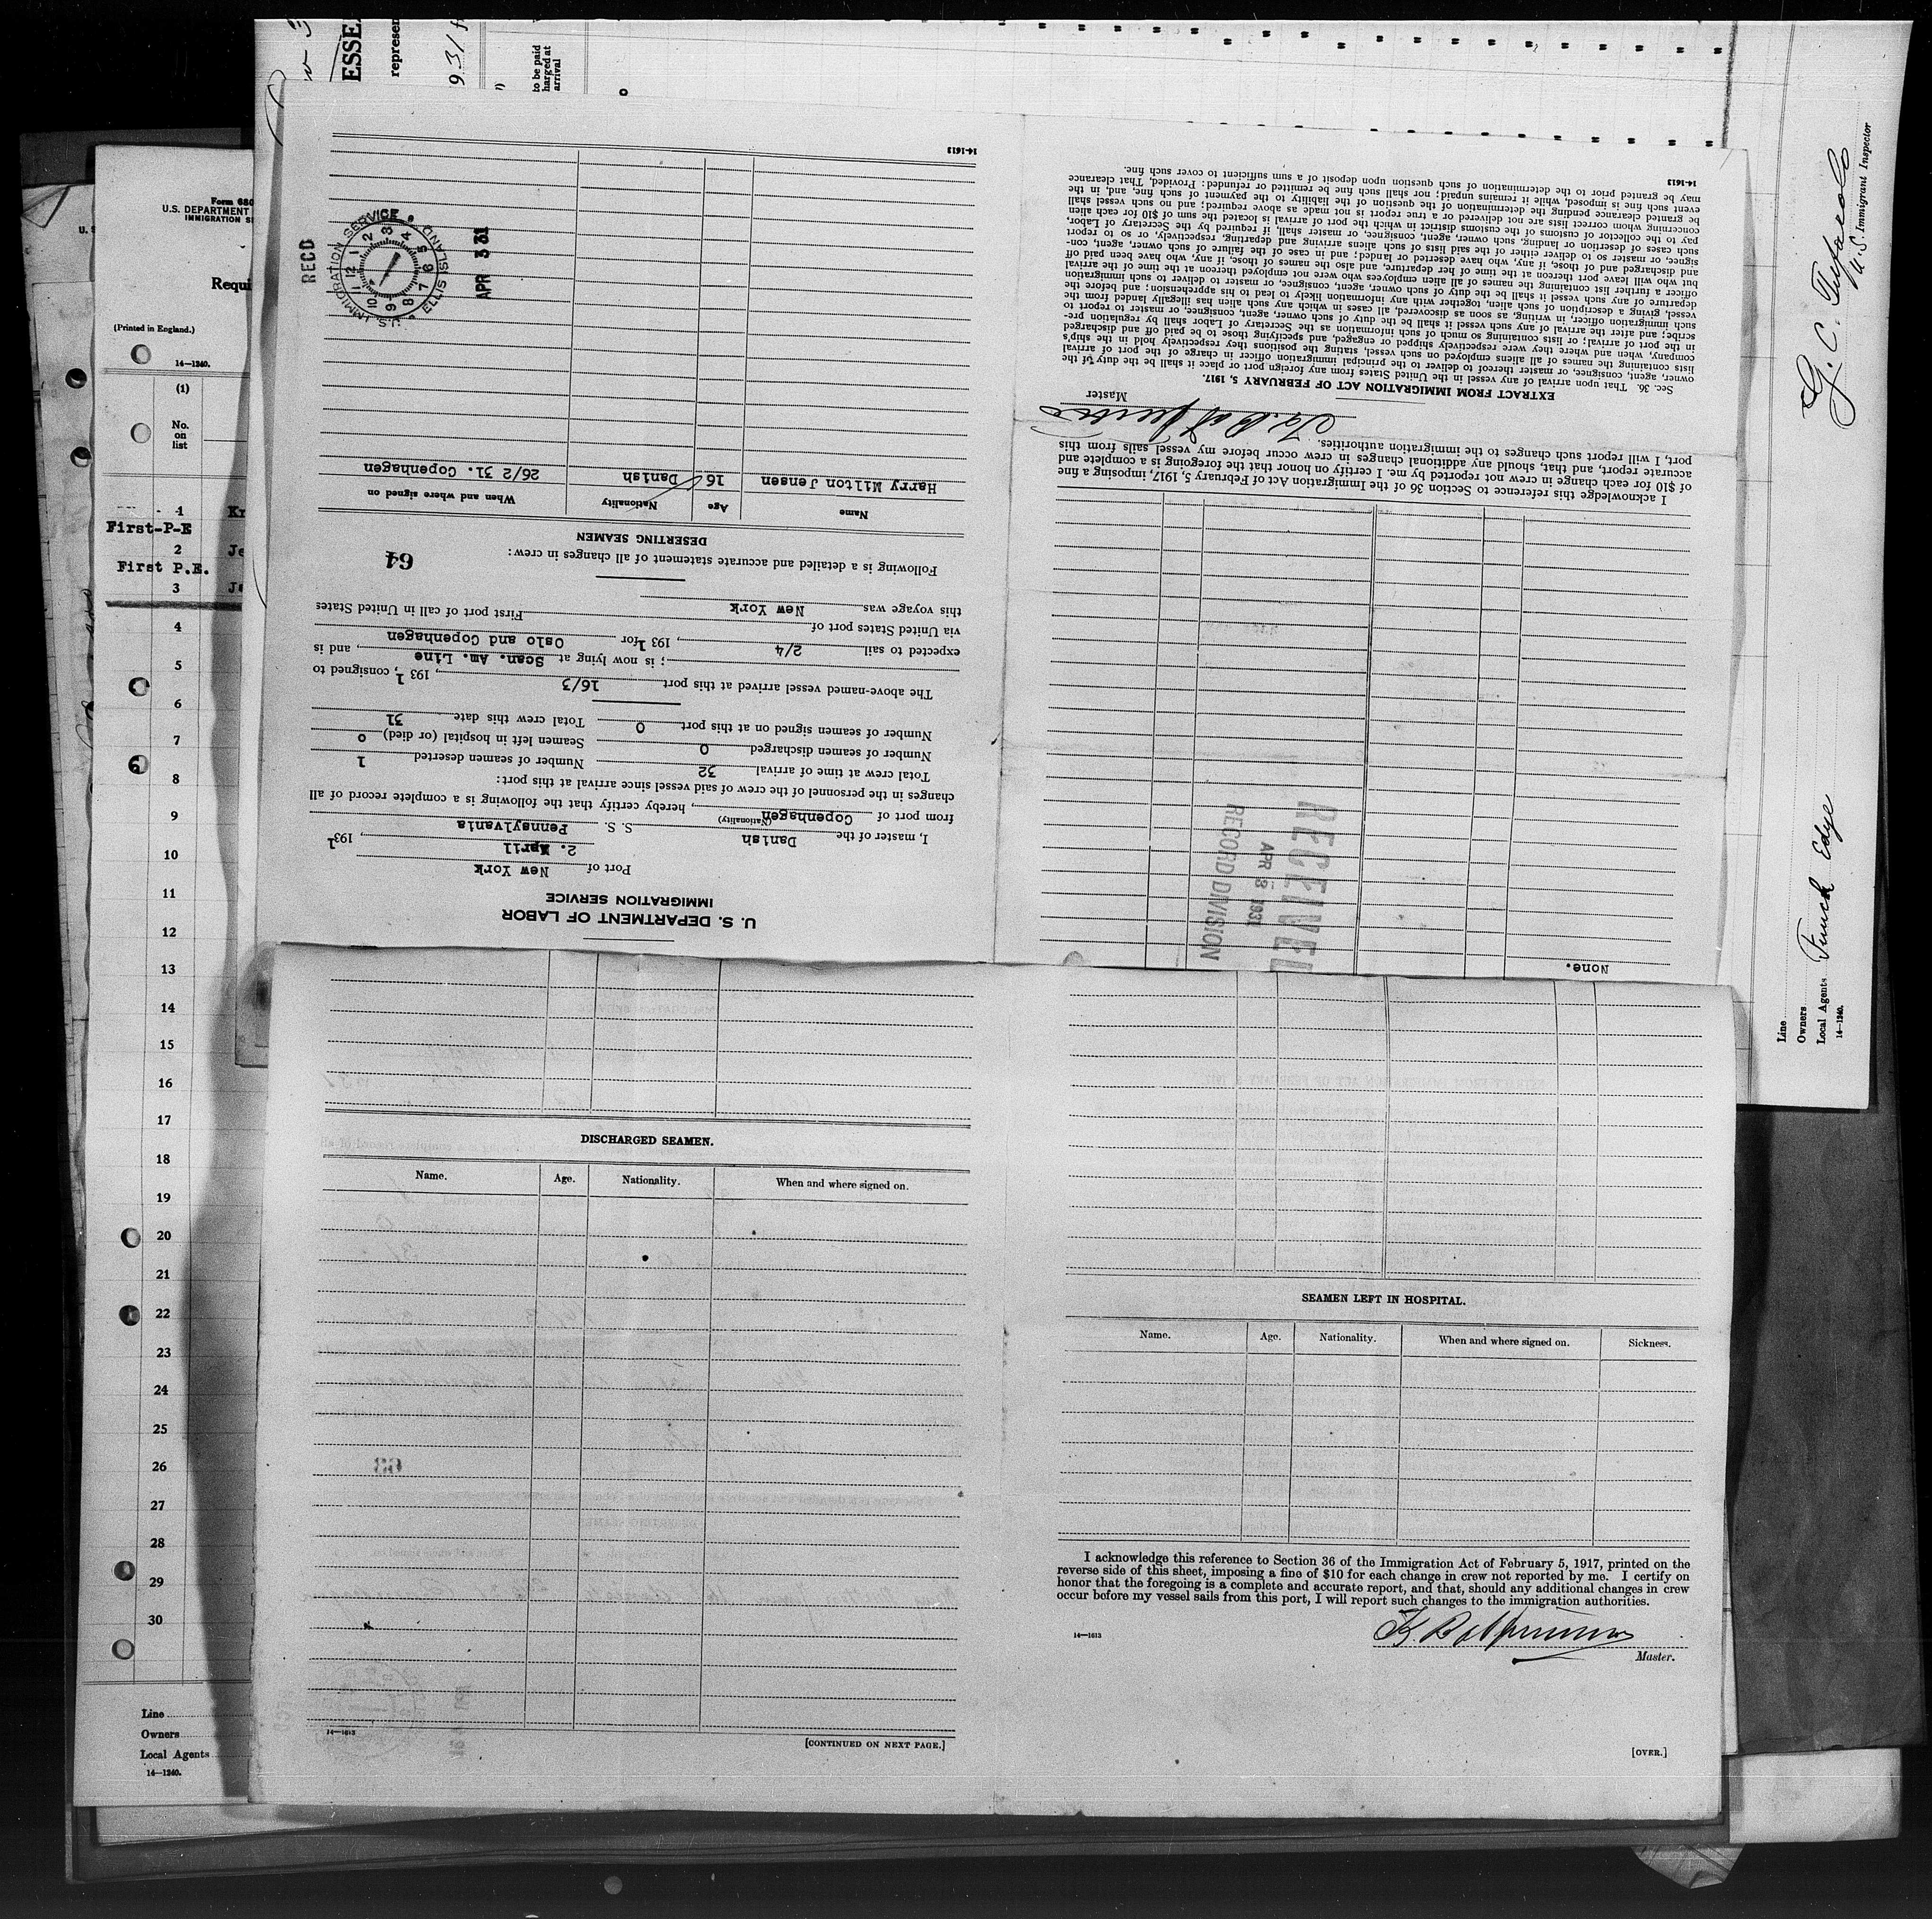 ESSE
represen
931
to be paid
harged at
arrival
Form 680
U.S. DEPARTMENT
IMMIGRATION SE
Requi
(Printed in England.)
14—1240.
(1)
No.
on
list
1 Kr
First-P-E
2 Je
First P.E.
3 Ja
4
5
6
7
8
9
10
11
12
13
14
15
16
17
18
19
20
21
22
23
24
25
26
27
28
29
30
Line
Owners
Local Agents
14—1240.
U. S. DEPARTMENT OF LABOR
IMMIGRATION SERVICE
Port of New York
2. April, 1931
I, master of the Danish S. S. Pennsylvania
(Nationality)
from port of Copenhagen, hereby certify that the following is a complete record of all
changes in the personnel of the crew of said vessel since arrival at this port:
Total crew at time of arrival 32 Number of seamen deserted 1
Number of seamen discharged 0 Seamen left in hospital (or died) 0
Number of seamen signed on at this port 0 Total crew this date 31
The above-named vessel arrived at this port 16/3, 1931, consigned to
; is now lying at Scan. Am. Line, and is
expected to sail 2/4, 1931 for Oslo and Copenhagen
via United States port of First port of call in United States
this voyage was New York
Following is a detailed and accurate statement of all changes in crew:
64
DESERTING SEAMEN
Name Age Nationality When and where signed on
Harry Milton Jensen 16 Danish 26/2 31. Copenhagen
RECD
U.S. IMMIGRATION SERVICE ELLIS ISLAND
12 1 2 3 4 5 6 7 8 9 10 11
APR 3 31
14-1613
None.
RECEIVED
APR 3 1931
RECORD DIVISION
I acknowledge this reference to Section 36 of the Immigration Act of February 5, 1917, imposing a fine
of $10 for each change in crew not reported by me. I certify on honor that the foregoing is a complete and
accurate report, and that, should any additional changes in crew occur before my vessel sails from this
port, I will report such changes to the immigration authorities.
Master
EXTRACT FROM IMMIGRATION ACT OF FEBRUARY 5, 1917.
Sec. 36. That upon arrival of any vessel in the United States from any foreign port or place it shall be the duty of the
owner, agent, consignee, or master thereof to deliver to the principal immigration officer in charge of the port of arrival
lists containing the names of all aliens employed on such vessel, stating the positions they respectively hold in the ship's
company, when and where they were respectively shipped or engaged, and specifying those to be paid off and discharged
in the port of arrival; or lists containing so much of such information as the Secretary of Labor shall by regulation pre-
scribe; and after the arrival of any such vessel it shall be the duty of such owner, agent, consignee, or master to report to
such immigration officer, in writing, as soon as discovered, all cases in which any such alien has illegally landed from the
vessel, giving a description of such alien, together with any information likely to lead to his apprehension; and before the
departure of any such vessel it shall be the duty of such owner, agent, consignee, or master to deliver to such immigration
officer a further list containing the names of all alien employees who were not employed thereon at the time of the arrival
but who will leave port thereon at the time of her departure, and also the names of those, if any, who have been paid off
and discharged and of those, if any, who have deserted or landed; and in case of the failure of such owner, agent, con-
signee, or master so to deliver either of the said lists of such aliens arriving and departing, respectively, or so to report
such cases of desertion or landing, such owner, agent, consignee, or master, shall, if required by the Secretary of Labor,
pay to the collector of customs of the customs district in which the port of arrival is located the sum of $10 for each alien
concerning whom correct lists are not delivered or a true report is not made as above required; and no such vessel shall
be granted clearance pending the determination of the question of the liability to the payment of such fine, and, in the
event such fine is imposed, while it remains unpaid; nor shall such fine be remitted or refunded: Provided, That clearance
may be granted prior to the determination of such question upon deposit of a sum sufficient to cover such fine.
14-1613
DISCHARGED SEAMEN.
Name. Age. Nationality. When and where signed on.
14—1613
[CONTINUED ON NEXT PAGE.]
SEAMEN LEFT IN HOSPITAL.
Name. Age. Nationality. When and where signed on. Sickness.
I acknowledge this reference to Section 36 of the Immigration Act of February 5, 1917, printed on the
reverse side of this sheet, imposing a fine of $10 for each change in crew not reported by me. I certify on
honor that the foregoing is a complete and accurate report, and that, should any additional changes in crew
occur before my vessel sails from this port, I will report such changes to the immigration authorities.
14—1613
Master.
[OVER.]
U. S. Immigrant Inspector
Line
Owners
Local Agents Funch Edye
14—1240.